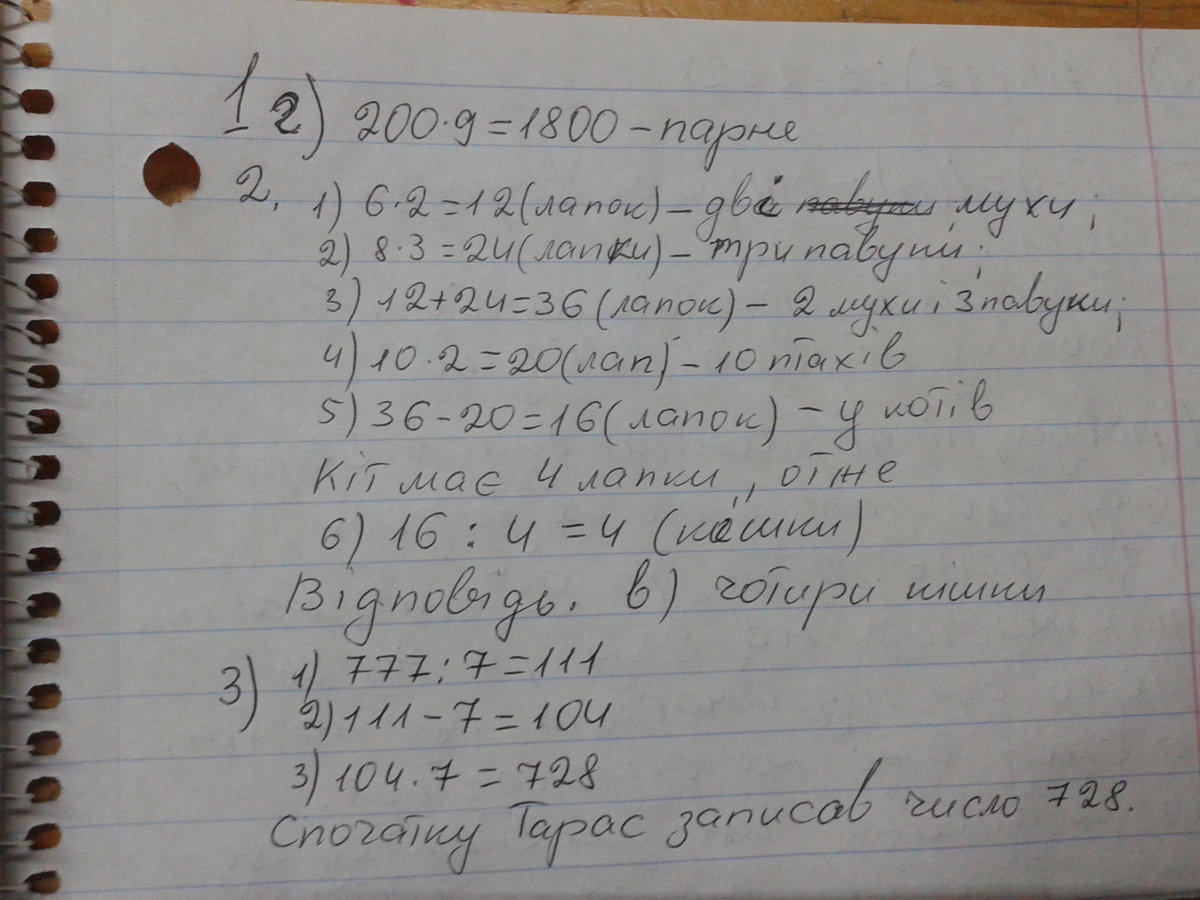 1 г) 200·9=1800 – парне
2. 1) 6·2=12 (лапок) – дві мухи;
2) 8·3=24 (лапки) – три павуки;
3) 12+24=36 (лапок) – 2 мухи і 3 павуки;
4) 10·2=20 (лап) – 10 птахів
5) 36-20=16 (лапок) – у котів
Кіт має 4 лапки, отже
6) 16 : 4 = 4 (кішки)
Відповідь. в) чотири кішки
3) 1) 777:7=111
2) 111-7=104
3) 104·7=728
Спочатку Тарас записав число 728.